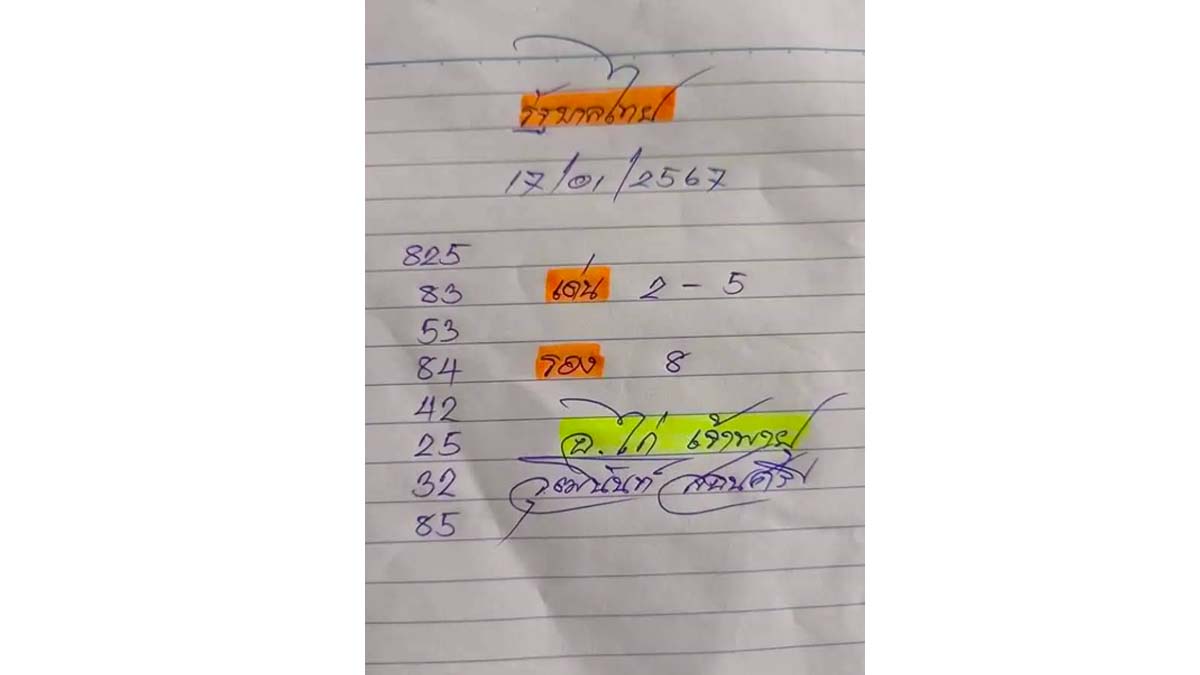 รัฐบาลไทย
17/01/2567
825
83 เด่น 2 - 5
53
84 รอง 8
42
25 อ. ไก่ เจ้าพายุ
32 วุฒินันท์
85